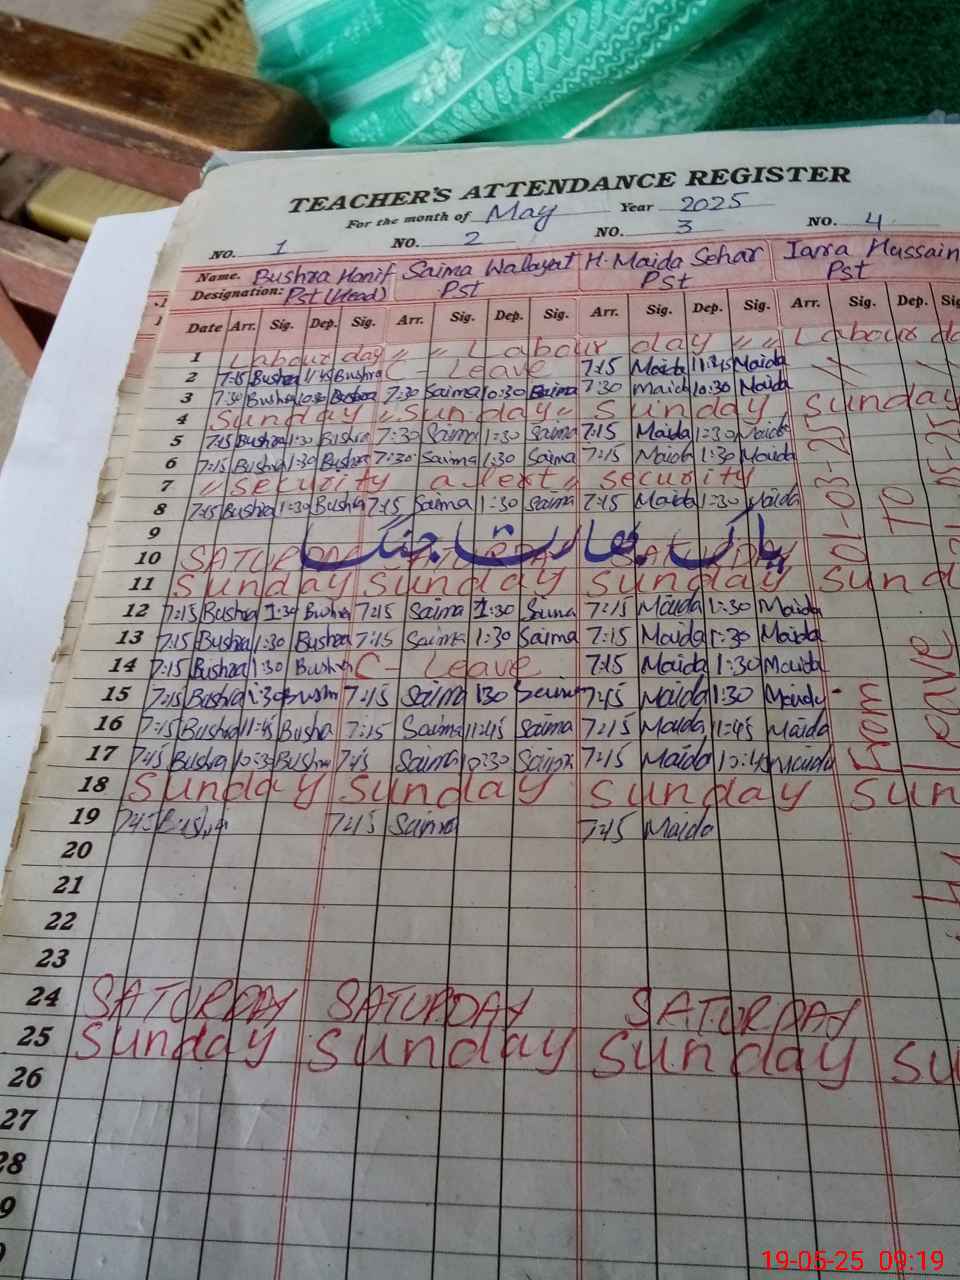 TEACHER'S ATTENDANCE REGISTER
For the month of May Year 2025
NO. 1 NO. 2 NO. 3 NO. 4
Name. Bushra Hanif Saima Walayat H. Maida Sehar Iarra Hussain
Designation: Pst (Head) Pst Pst Pst
Date Arr. Sig. Dep. Sig. Arr. Sig. Dep. Sig. Arr. Sig. Dep. Sig. Arr. Sig. Dep. Sig
1 Labour day " " Labour day " " Labour da
2 7:15 Bushra 11:45 Bushra C- Leave 7:15 Maida 11:45 Maida
3 7:30 Bushra 10:30 Bushra 7:30 Saima 10:30 Saima 7:30 Maida 10:30 Maida
4 Sunday " Sunday " Sunday Sunday
5 7:15 Bushra 1:30 Bushra 7:30 Saima 1:30 Saima 7:15 Maida 1:30 Maida
6 7:15 Bushra 1:30 Bushra 7:30 Saima 1:30 Saima 7:15 Maida 1:30 Maida
7 " security alext " security
8 7:15 Bushra 1:30 Bushra 7:15 Saima 1:30 Saima 7:15 Maida 1:30 Maida
9 پاک بھارت جنگ
10 SATURDAY SATURDAY SATURDAY
11 Sunday Sunday Sunday Sund
12 7:15 Bushra 1:30 Bushra 7:15 Saima 1:30 Saima 7:15 Maida 1:30 Maida
13 7:15 Bushra 1:30 Bushra 7:15 Saima 1:30 Saima 7:15 Maida 1:30 Maida
14 7:15 Bushra 1:30 Bushra C- Leave 7:15 Maida 1:30 Maida
15 7:15 Bushra 1:30 Bushra 7:15 Saima 1:30 Saima 7:45 Maida 1:30 Maida
16 7:15 Bushra 11:45 Bushra 7:15 Saima 11:45 Saima 7:15 Maida 11:45 Maida
17 7:45 Bushra 10:30 Bushra 7:45 Saima 10:30 Saima 7:15 Maida 10:45 Maida
18 Sunday Sunday Sunday Sun
19 7:45 Bushra 7:45 Saima 7:45 Maida
20
21
22
23
24 SATURDAY SATURDAY SATURDAY
25 Sunday Sunday Sunday Su
26
27
28
9
From 01-03-25 TO
Leave 05-25
19-05-25 09:19